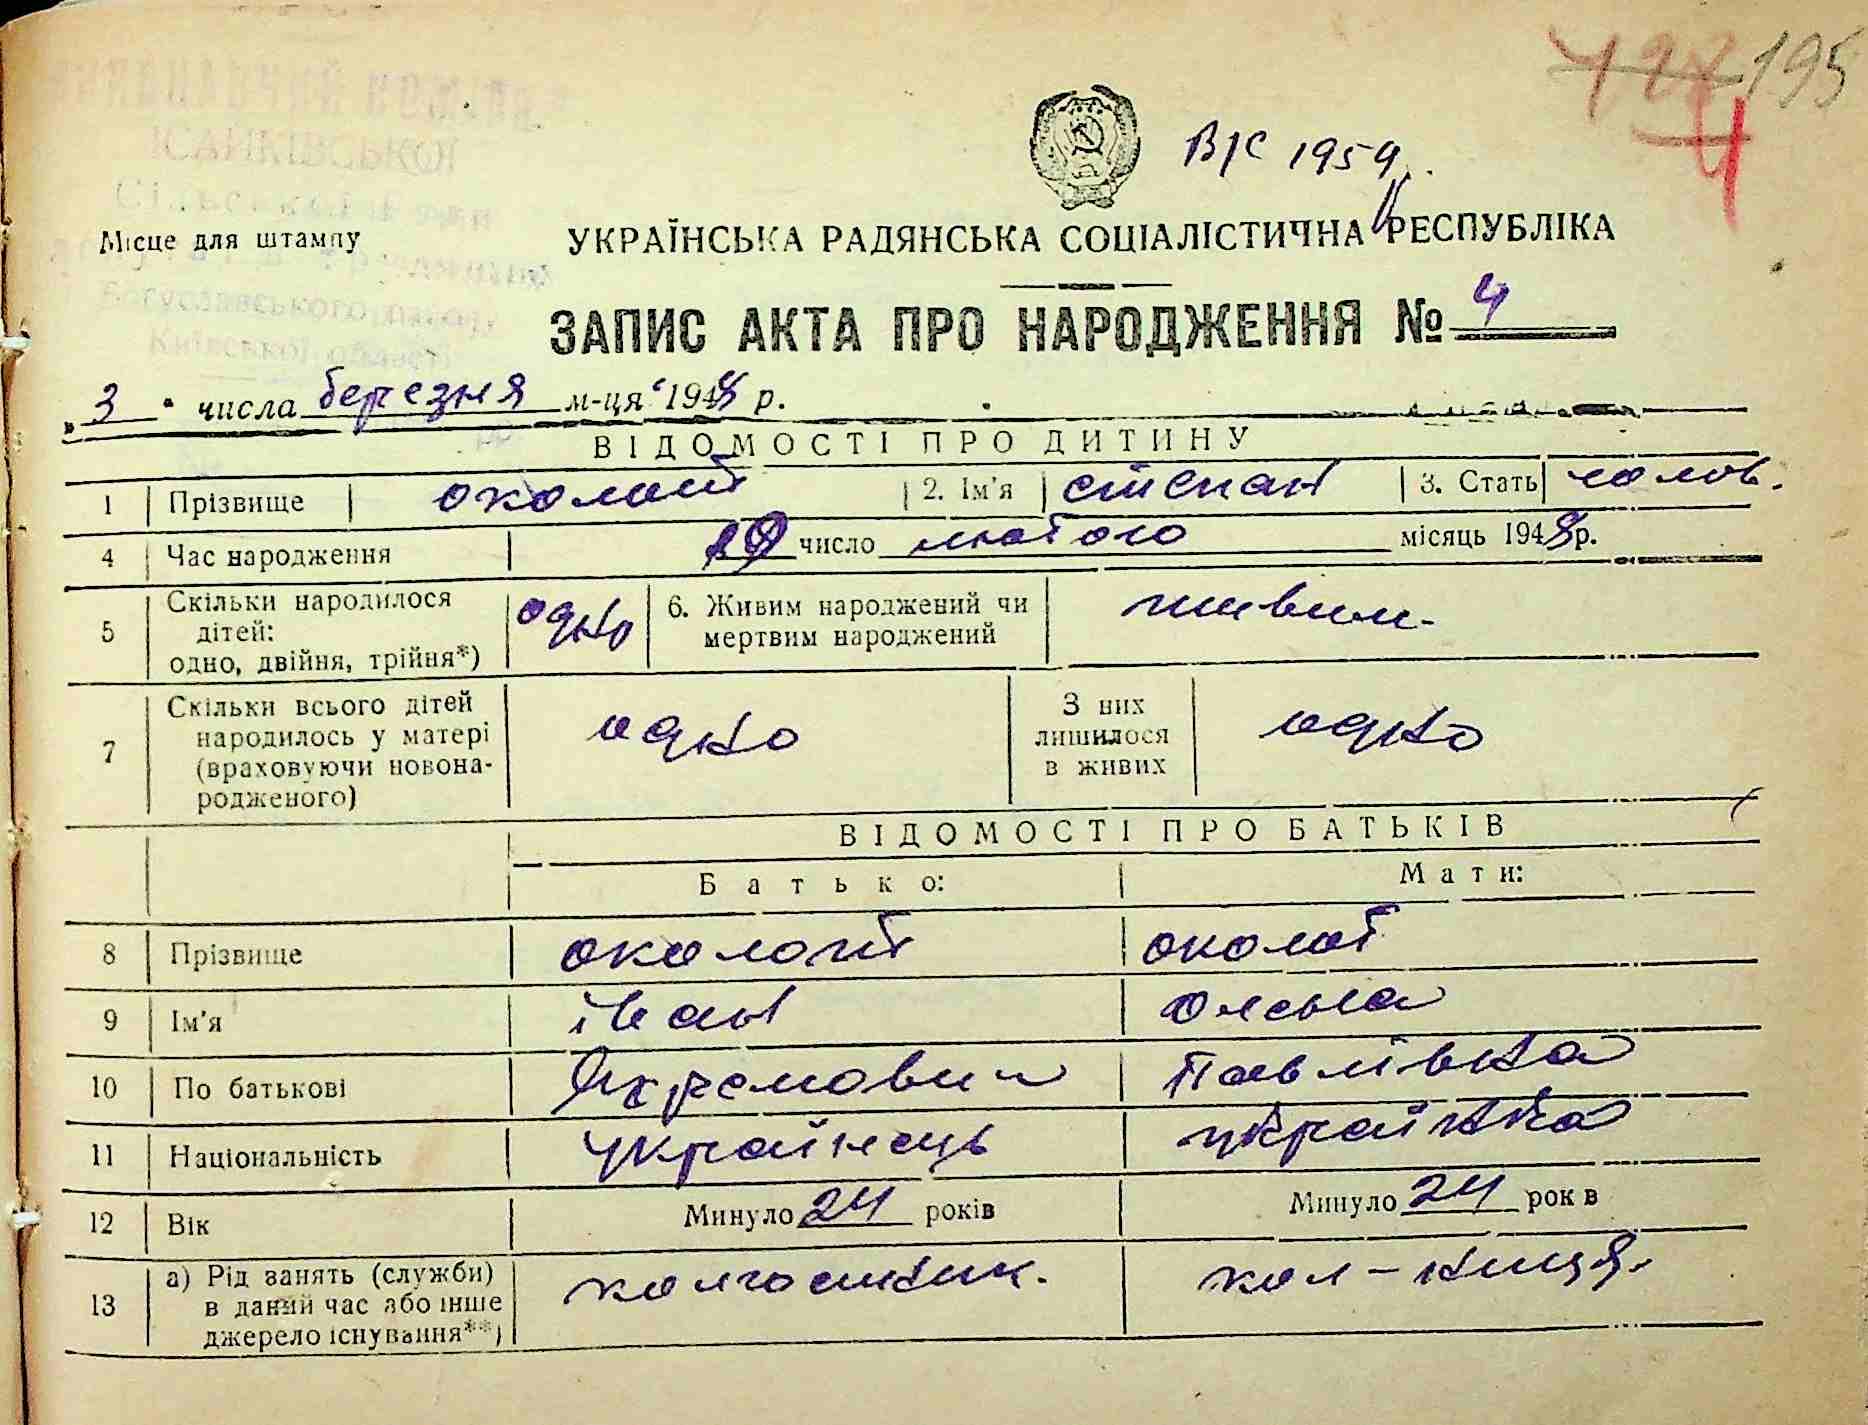 195
В/С 1959
ВИКОНАВЧИЙ КОМІТЕТ
ІСАЙКІВСЬКОЇ
Сільської Ради
Богуславського району
Київської області
Місце для штампу
УКРАЇНСЬКА РАДЯНСЬКА СОЦІАЛІСТИЧНА РЕСПУБЛІКА
ЗАПИС АКТА ПРО НАРОДЖЕННЯ № 4
„3“ числа березня м-ця 1948 р.
ВІДОМОСТІ ПРО ДИТИНУ
1 Прізвище околот 2. Ім'я степан 3. Стать чолов.
4 Час народження число лютого місяць 1948 р.
5 Скільки народилося дітей: одно, двійня, трійня*) одно 6. Живим народжений чи мертвим народжений живим
7 Скільки всього дітей народилось у матері (враховуючи новонародженого) одно З них лишилося в живих одно
ВІДОМОСТІ ПРО БАТЬКІВ
Батько: Мати:
8 Прізвище околот околот
9 Ім'я іван олена
10 По батькові Яхремович Павлівна
11 Національність українець українка
12 Вік Минуло 24 років Минуло 24 рок в
13 а) Рід занять (служби) в даний час або інше джерело існування**) колгоспник. кол-ниця.